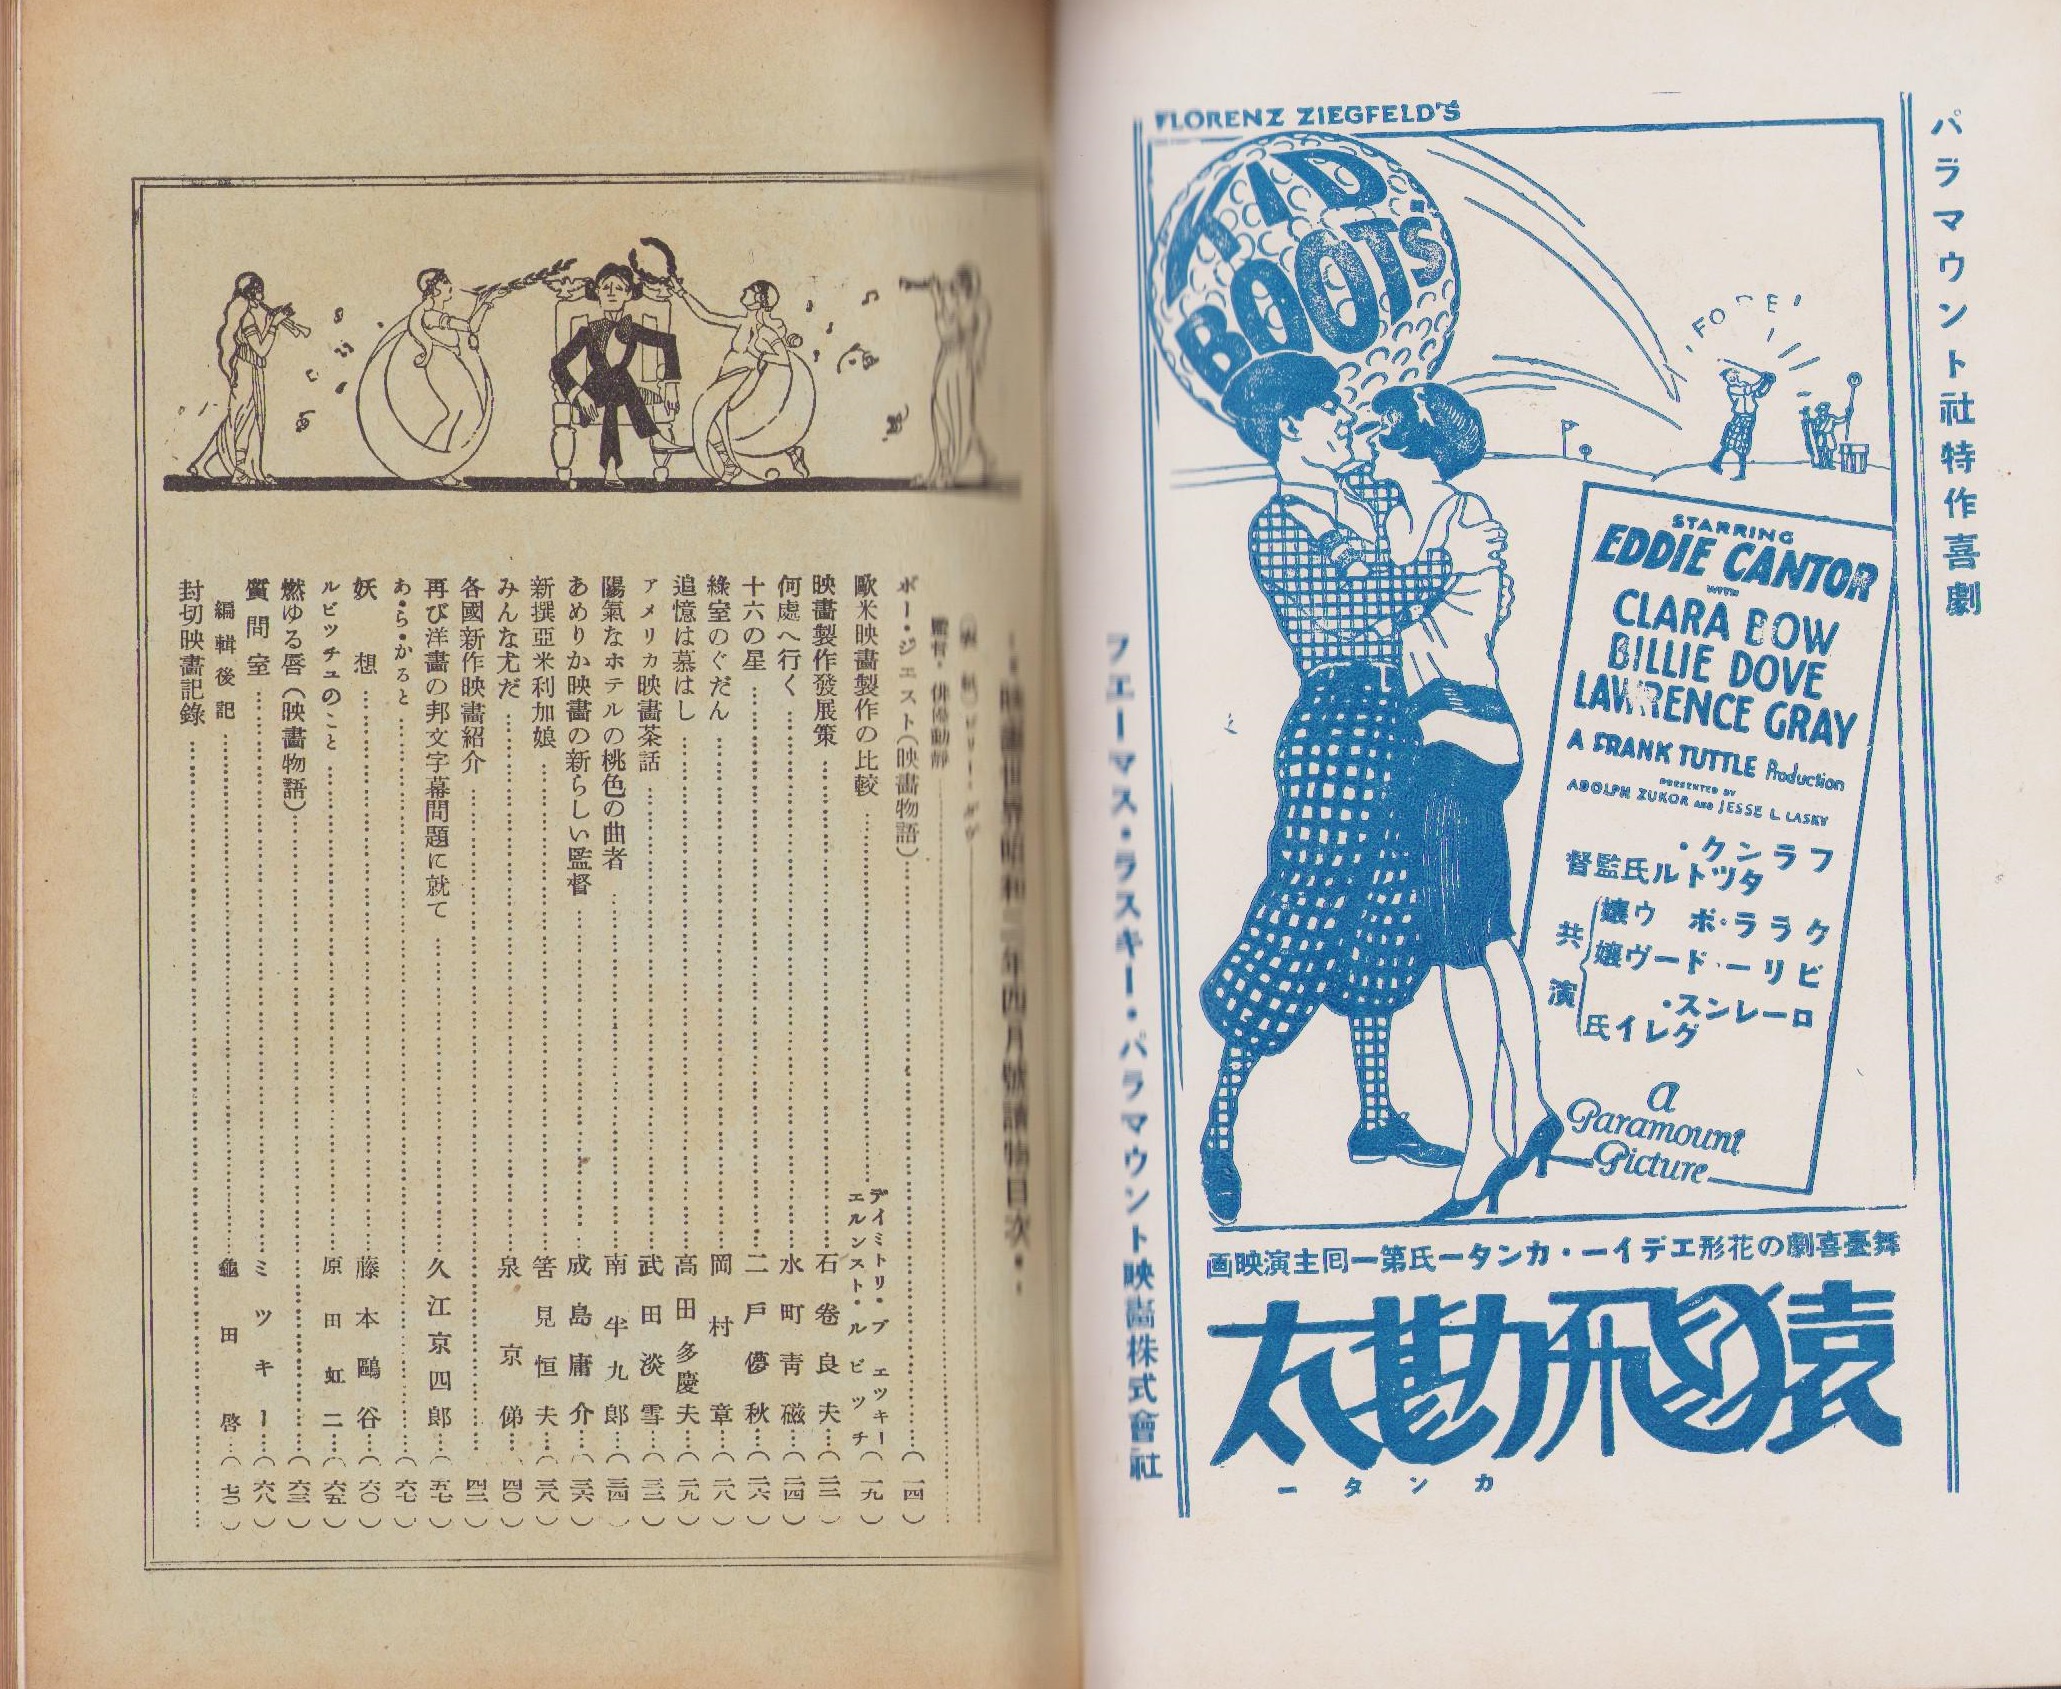 パラマウント社特作喜劇
FLORENZ ZIEGFELD'S
KID
BOOTS
FORE!
STARRING
EDDIE CANTOR
WITH
CLARA BOW
BILLIE DOVE
LAWRENCE GRAY
A FRANK TUTTLE Production
PRESENTED BY
ADOLPH ZUKOR AND JESSE L. LASKY
フランク・
タツトル氏監督
クララ・ボウ孃
ビリー・ドーヴ孃
ローレンス・
グレイ氏
共演
a
Paramount
Picture
舞臺喜劇の花形エデイー・カンター氏第一囘主演映画
猿飛勘太
カンター
フエーマス・ラスキー・パラマウント映畵株式會社
昭和二年四月號讀物目次
監督・俳優動靜
ボー・ジエスト(映畫物語)……(一四)
歐米映畫製作の比較……デイミトリ・ブエツキー エルンスト・ルビツチ(一九)
映畫製作發展策……石卷良夫…(二二)
何處へ行く……水町靑磁…(二四)
十六の星……二戸儚秋…(二六)
綠室のぐだん……岡村章…(二八)
追憶は慕はし……高田多慶夫…(二九)
アメリカ映畫茶話……武田淡雪…(三二)
陽氣なホテルの桃色の曲者……南半九郎…(三四)
あめりか映畫の新らしい監督……成島庸介…(三六)
新撰亞米利加娘……筈見恒夫…(三八)
みんな尤だ……泉京俤…(四〇)
各國新作映畫紹介……(四二)
再び洋畫の邦文字幕問題に就て……久江京四郎…(五七)
あ・ら・かると……(六七)
妖想……藤本鷗谷…(六〇)
ルビツチユのこと……原田虹二…(六五)
燃ゆる唇(映畫物語)……(六三)
質問室……ミツキー…(六八)
編輯後記……龜田啓…(七〇)
封切映畫記錄……